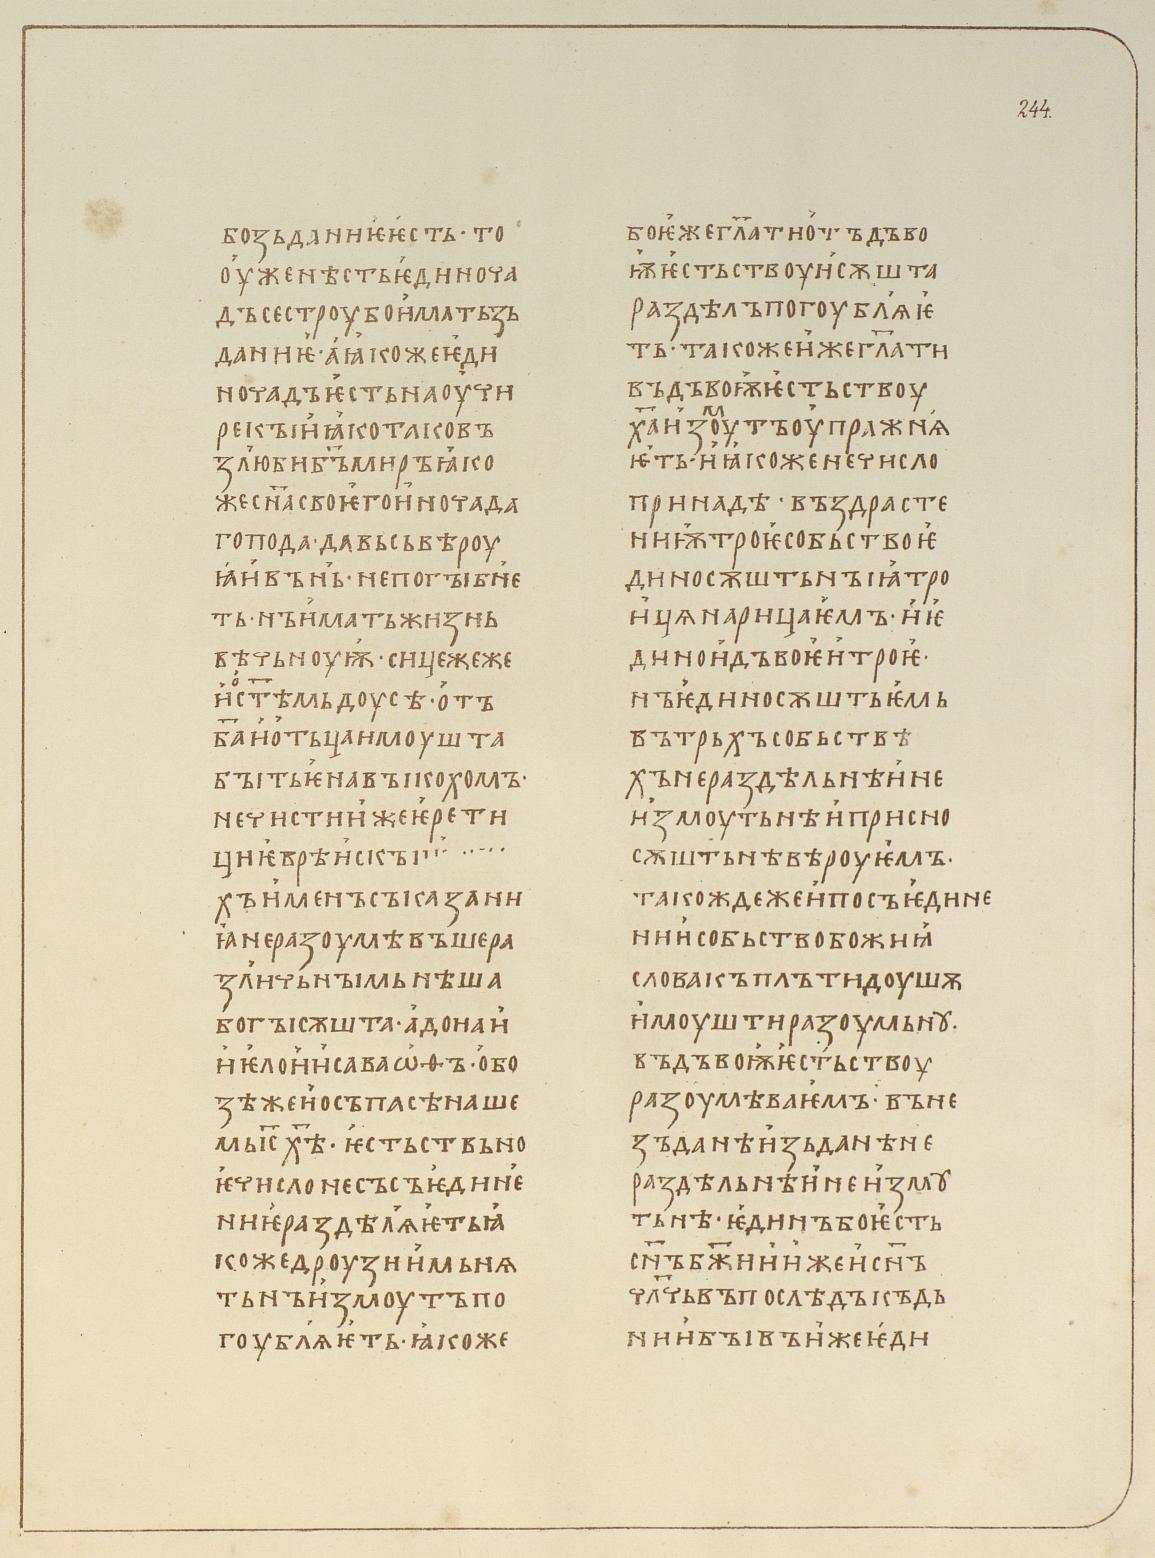 244.
бозьданиѥѥсть· то
оуженѣстьѥдиноча
дъсестроубоиматьзь
даниѥ·аꙗкожеѥди
ночадъѥстьнаоучи
рекꙑиꙗкотаковъ
злюбибъ҃миръꙗко
жесн҃асвоѥгоиночада
господа·давьсьвѣроу
ꙗивънь·непогꙑбне
ть·нъиматьжизнь
вѣчьноуѭ·сицежеже
ио҆ст҃ѣмьдоусѣ·отъ
ба҃иотьцаимоушта
бꙑтьѥнавꙑкохомъ·
нечистиижеѥрети
циѥврѣискꙑ
хъименъсъказани
ꙗнеразоумѣвъшера
зличьнꙑмьнѣша
богꙑсѫшта·адонаи
иѥлоиисаваѡѳъ·обо
зѣжеиосъпасѣнаше
мьіс҃ х҃ѣ· ѥстьствьно
ѥчислонесъсъѥдине
ниѥраздѣлꙗѥтьꙗ
кожедроузиимьнѧ
тьнъизмоутъпо
гоублꙗѥть·ꙗкоже
боѥжегл҃атиотъдъво
ѭѥстьствоуисѫшта
раздѣлъпогоублꙗѥ
ть·такожеижегл҃ати
въдъвоѭѥстьствоу
х҃аизмоутъоупражнꙗ
ѥть·иꙗкоженечисло
принадѣ·въздрасте
ниѭтроѥсобьствоѥ
диносѫштьнꙑꙗтро
ицѧнарицаѥмъ·иѥ
диноидъвоѥитроѥ·
нъѥдиносѫштьѥмь
вътрьхъсобьствѣ
хънераздѣльнѣине
измоутьнѣиприсно
сѫштьнѣвѣроуѥмъ·
такождежеипосъѥдине
ниисобьствобожиꙗ
словакъплътидоушѫ
имоуштиразоумьнꙋ·
въдъвоѭѥстьствоу
разоумѣваѥмъ·въне
зъданѣизьданѣне
раздѣльнѣинеизмꙋ
тьнѣ·ѥдинъбоѥсть
сн҃ъбж҃ииижеисн҃ъ
чл҃чьвъпослѣдъкъдь
ниибꙑвъижеѥди